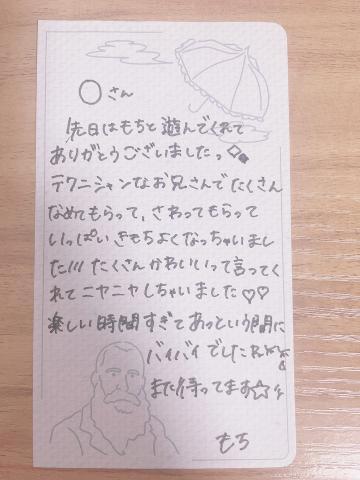 ○さん
先日はもちと遊んでくれて
ありがとうございましたっ
テクニシャンなお兄さんでたくさん
なめてもらって、さわってもらって
いっぱいきもちよくなっちゃいまし
た/// たくさんかわいいって言ってく
れてニヤニヤしちゃいました♡♡
楽しい時間すぎてあっという間に
バイバイでした
また待ってます☆
もち